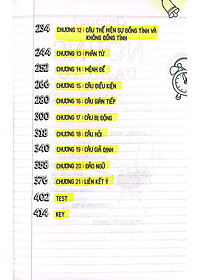 234 CHƯƠNG 12: CÂU THỂ HIỆN SỰ ĐỒNG TÌNH VÀ
KHÔNG ĐỒNG TÌNH
244 CHƯƠNG 13: PHÂN TỪ
252 CHƯƠNG 14: MỆNH ĐỀ
266 CHƯƠNG 15: CÂU ĐIỀU KIỆN
280 CHƯƠNG 16: CÂU GIÁN TIẾP
300 CHƯƠNG 17: CÂU BỊ ĐỘNG
318 CHƯƠNG 18: CÂU HỎI
340 CHƯƠNG 19: CÂU GIẢ ĐỊNH
358 CHƯƠNG 20: ĐẢO NGỮ
376 CHƯƠNG 21: LIÊN KẾT Ý
402 TEST
414 KEY